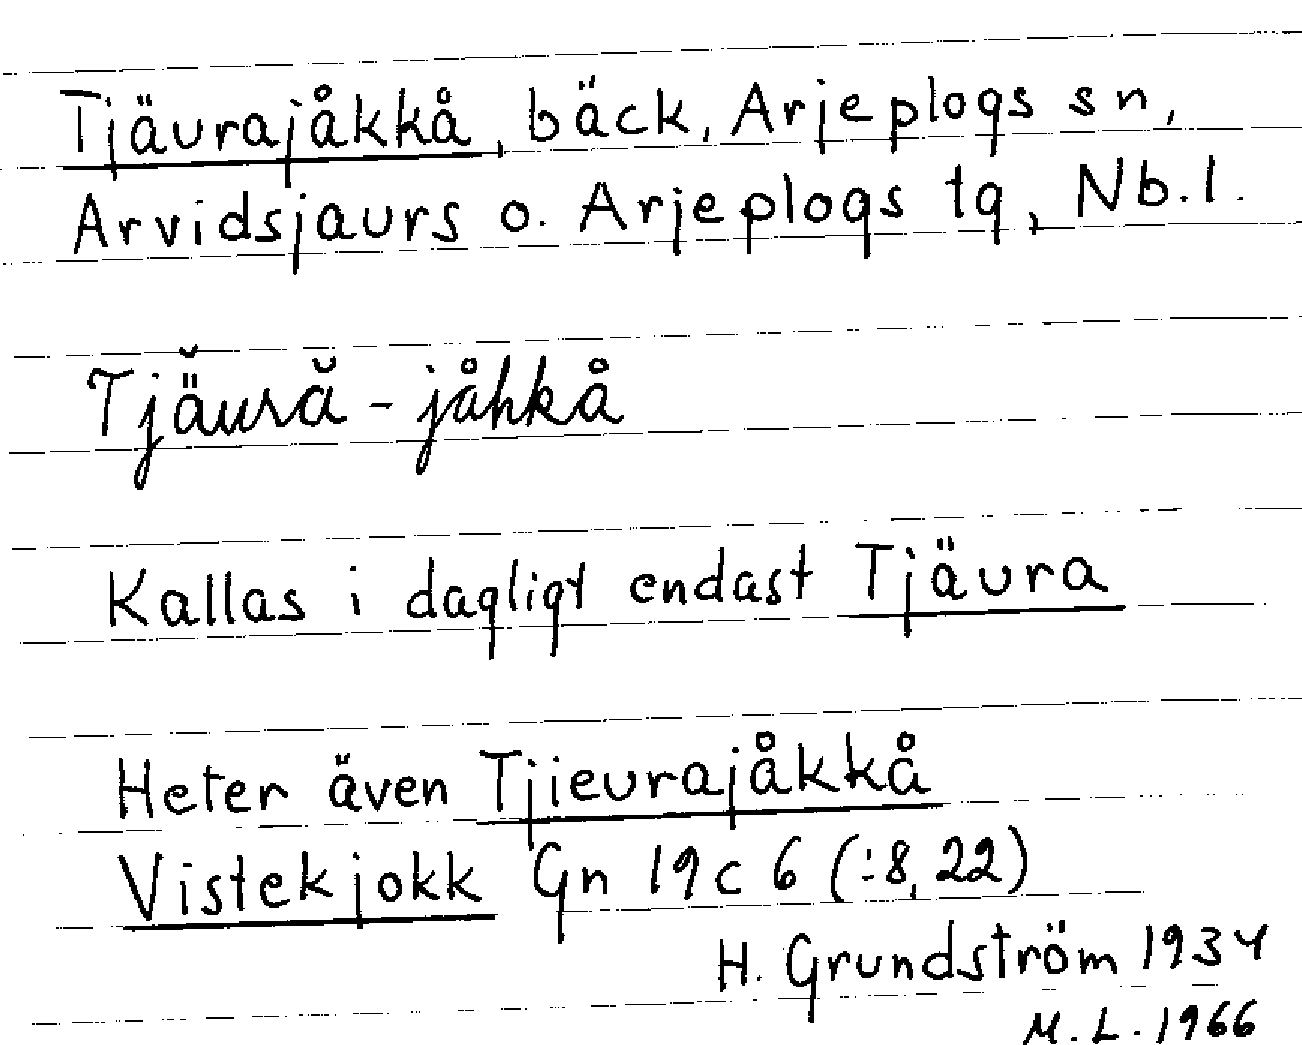 Tjäurajåkkå, bäck, Arjeplogs sn,
Arvidsjaurs o. Arjeplogs tg, Nb.l.
Tjä̆ură-jåhkå
Kallas i dagligt endast Tjäura
Heter även Tjieurajåkkå
Vistekjokk Gn 19c 6 (:8, 22)
H. Grundström 1934
M.L. 1966